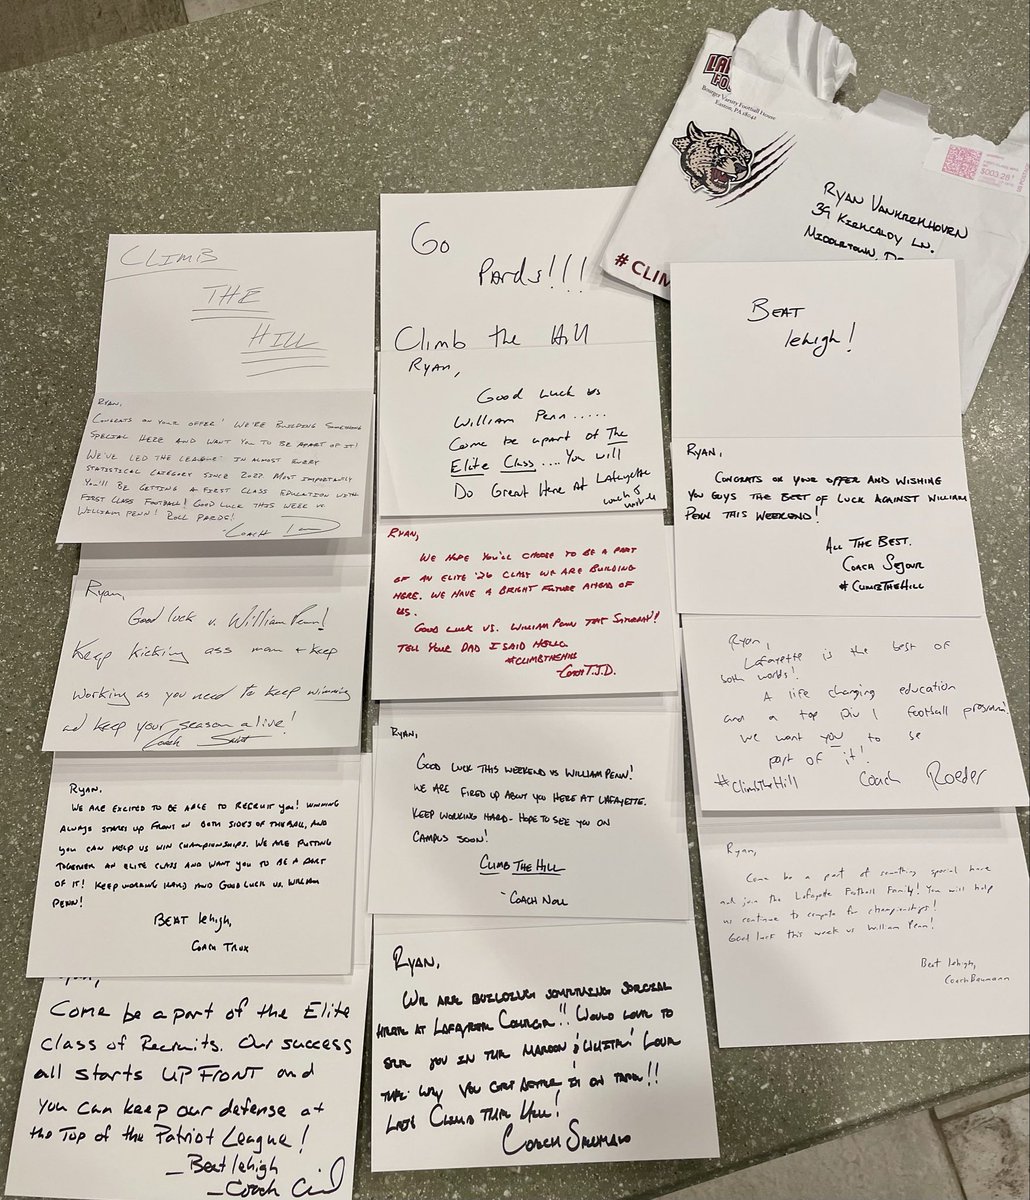 CLIMB
THE
HILL
RYAN,
CONGRATS ON YOUR OFFER! WE'RE BUILDING SOMETHING
SPECIAL HERE AND WANT YOU TO BE APART OF IT!
WE'VE LED THE LEAGUE IN ALMOST EVERY
STATISTICAL CATEGORY SINCE 2022 MOST IMPORTANTLY
YOU'LL BE GETTING A FIRST CLASS EDUCATION WITH
FIRST CLASS FOOTBALL! GOOD LUCK THIS WEEK VS
WILLIAM PENN! ROLL PARDS!
-COACH
Ryan,
Good luck v. William Penn!
Keep kicking ass man + keep
working as you need to keep winning
and keep your season alive!
Coach
RYAN,
WE ARE EXCITED TO BE ABLE TO RECRUIT YOU! WINNING
ALWAYS STARTS UP FRONT ON BOTH SIDES OF THE BALL, AND
YOU CAN HELP US WIN CHAMPIONSHIPS. WE ARE PUTTING
TOGETHER AN ELITE CLASS AND WANT YOU TO BE A PART
OF IT! KEEP WORKING HARD AND GOOD LUCK VS. WILLIAM
PENN!
BEAT lehigh,
COACH TRUX
Come be a part of the Elite
class of Recruits. Our success
all starts UP FRONT and
you can keep our defense at
the Top of the Patriot League!
-Beat lehigh
-Coach
Go
Pards!!!
Climb the Hill
Ryan,
Good Luck vs
William Penn.....
Come be apart of The
Elite Class....You will
Do Great Here At Lafayette
coach
RYAN,
WE HOPE YOU'LL CHOOSE TO BE A PART
OF AN ELITE '26 CLASS WE ARE BUILDING
HERE. WE HAVE A BRIGHT FUTURE AHEAD OF
US.
GOOD LUCK VS. WILLIAM PENN THIS SATURDAY!
TELL YOUR DAD I SAID HELLO.
#CLIMBTHEHILL
-COACH T.J.D.
RYAN,
GOOD LUCK THIS WEEKEND VS WILLIAM PENN!
WE ARE FIRED UP ABOUT YOU HERE AT LAFAYETTE.
KEEP WORKING HARD- HOPE TO SEE YOU ON
CAMPUS SOON!
CLIMB THE HILL
-COACH NOLL
RYAN,
WE ARE BUILDING SOMETHING SPECIAL
HERE AT LAFAYETTE COLLEGE!! WOULD LOVE TO
SEE YOU IN THE MAROON & WHITE! LOVE
THE WAY YOU GET AFTER IT ON TAPE!!
LETS CLIMB THE HILL!
COACH
Bourger Varsity Football House
Easton, PA 18042
$003.28
RYAN VANKREKHOVEN
39 KIRKCALDY LN.
MIDDLETOWN, DE
#CLIM
BEAT
lehigh!
RYAN,
CONGRATS ON YOUR OFFER AND WISHING
YOU GUYS THE BEST OF LUCK AGAINST WILLIAM
PENN THIS WEEKEND!
ALL THE BEST.
COACH SEJOUR
#CLIMBTHEHILL
Ryan,
Lafayette is the best of
both worlds!
A life changing education
and a top Div 1 football program!
we want you to be
part of it!
#ClimbTheHill Coach Roeder
Ryan,
Come be a part of something special here
and join the Lafayette Football Family! You will help
us continue to compete for championships!
Good luck this week vs William Penn!
Beat lehigh,
Coach Baumann